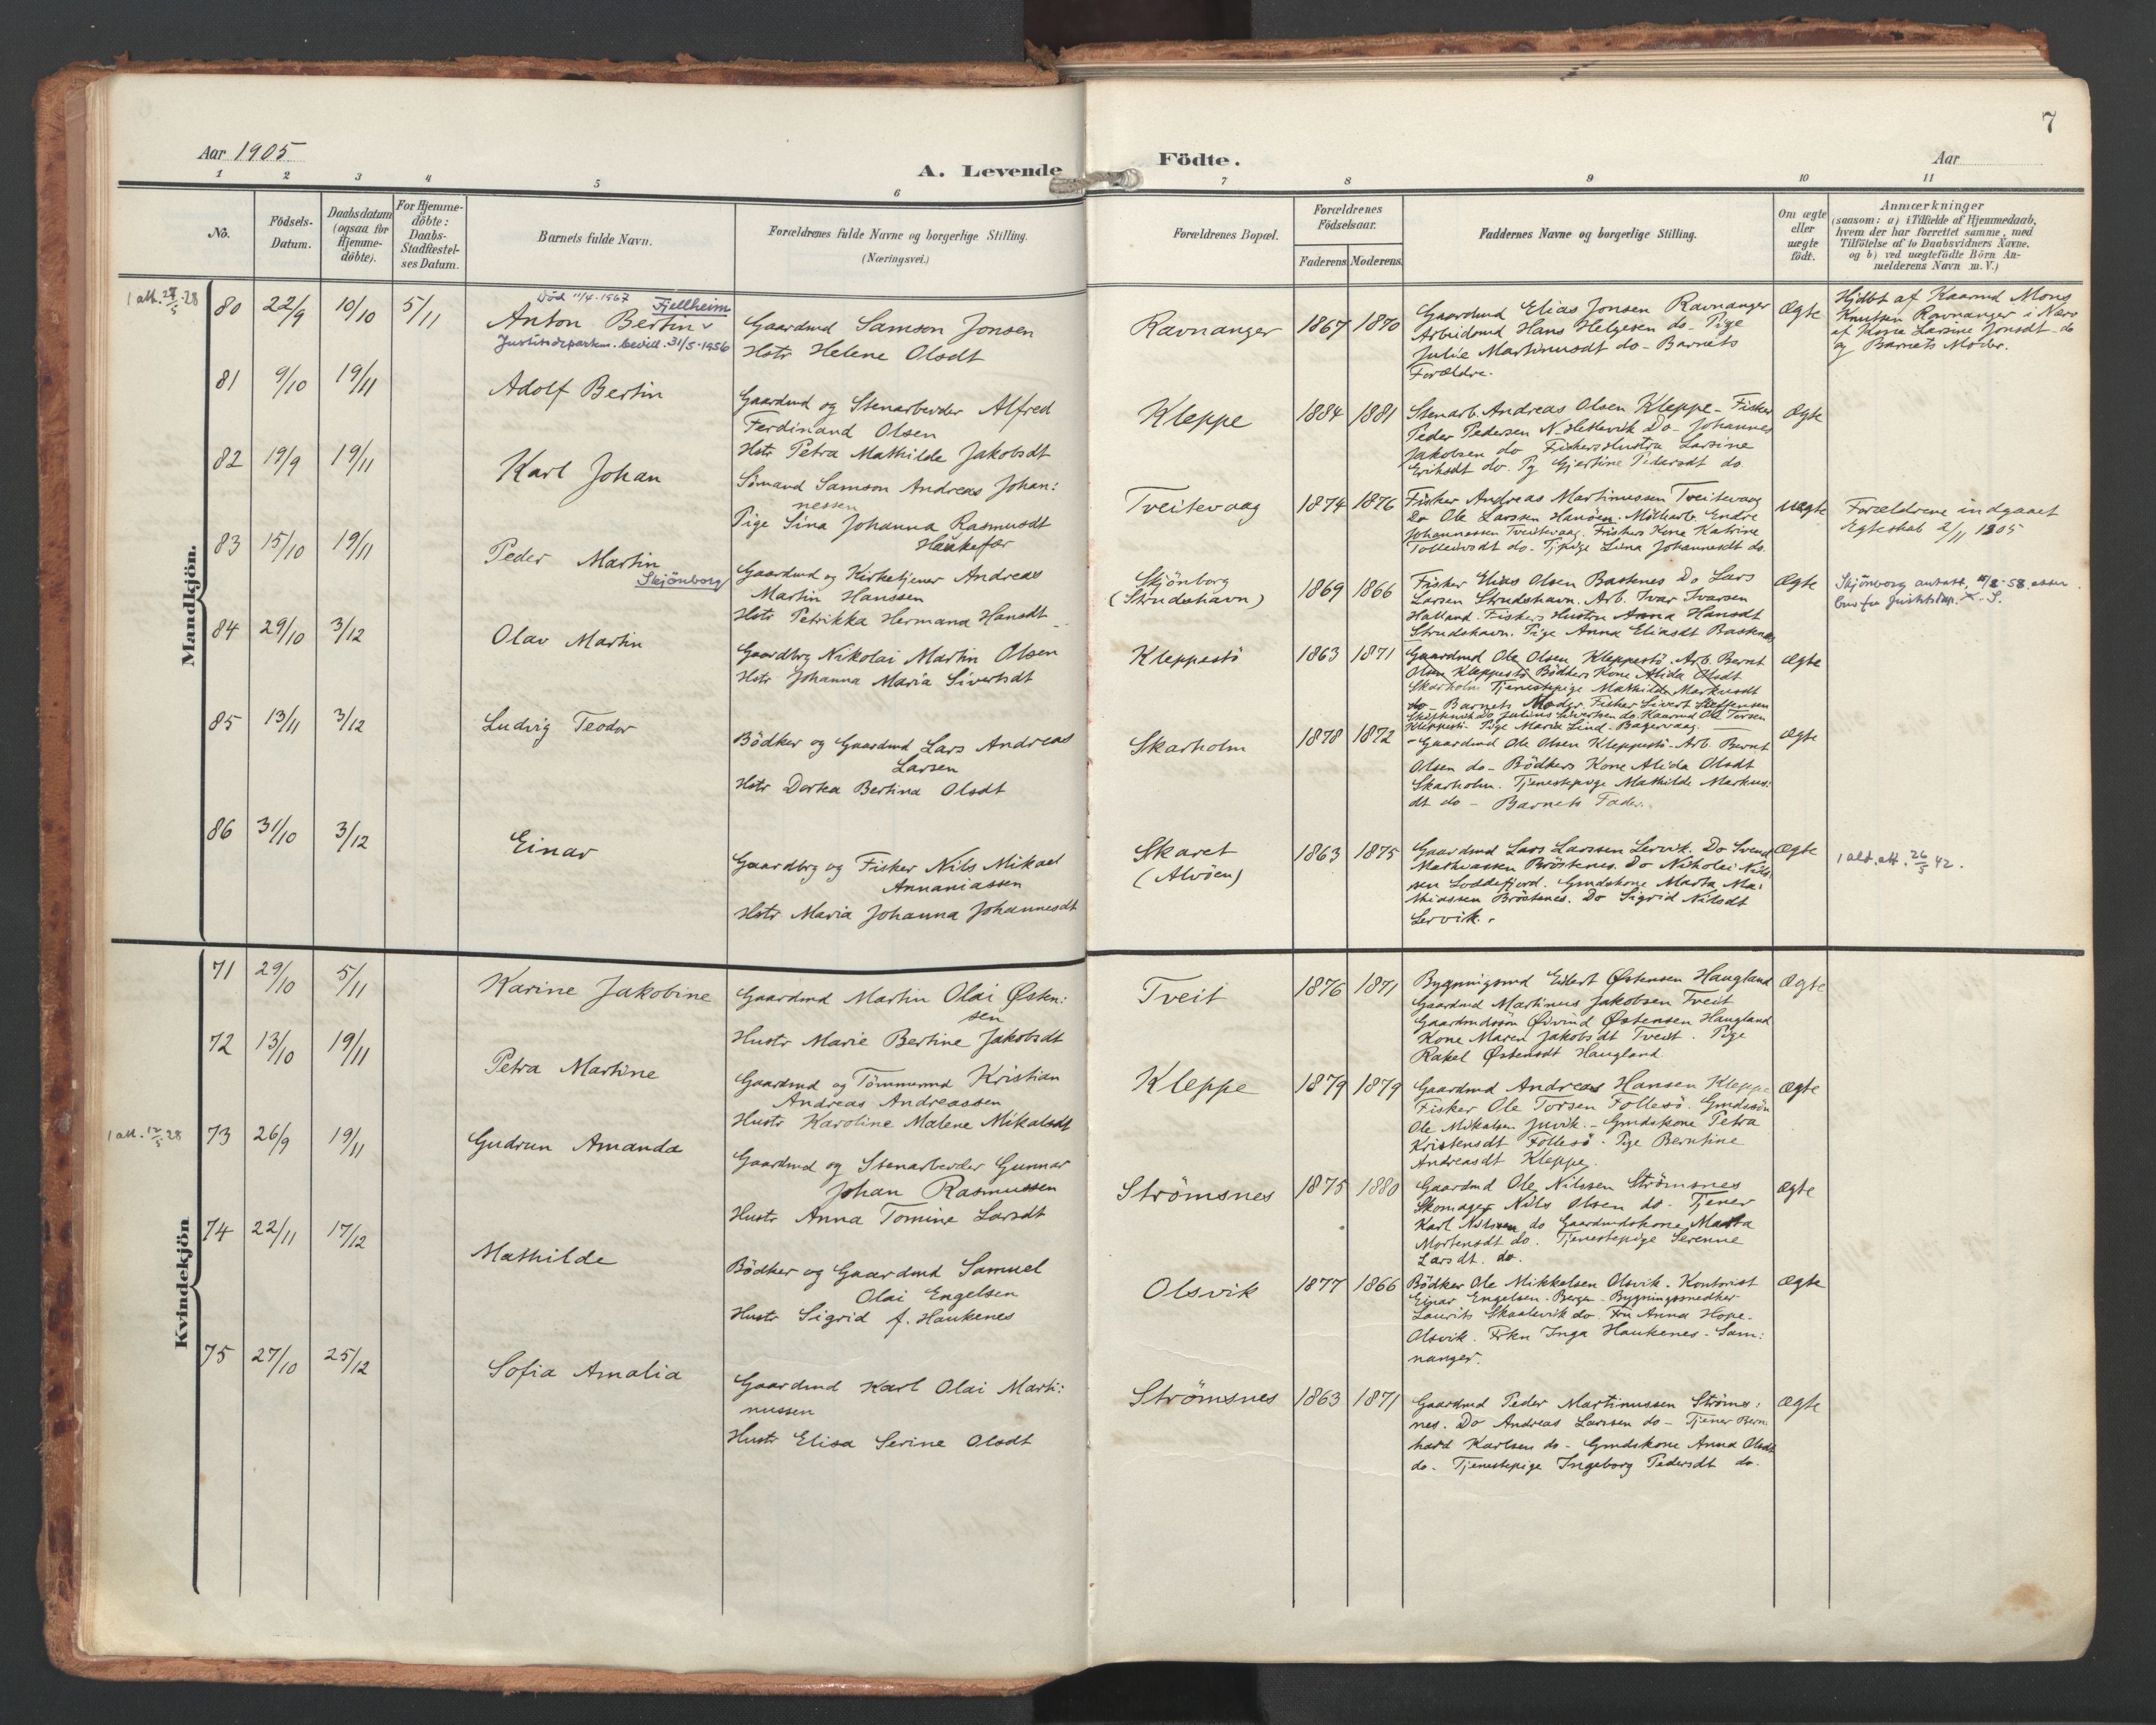 Aar 1905
A. Levende
1 2 3 4 5 6
No.
Födsels-
Datum.
Daabsdatum
(ogsaa for
Hjemme-
döbte).
For Hjemme-
döbte:
Daabs-
Stadfæstel-
ses Datum.
Barnets fulde Navn.
Forældrenes fulde Navne og borgerlige Stilling.
(Næringsvei.)
Mandkjön.
1 att. 24/5-28
80 22/9 10/10 5/11
Död 11/4-1967
Fjellheim
Anton Bertin
Justitsdepartm. bevill. 31/5-1956
Gaardmd Samson Jonsen
Hstr Helene Olsdt
81 9/10 19/11
Adolf Bertin
Gaardmd og Stenarbeider Alfred
Ferdinand Olsen
Hstr Petra Mathilde Jakobsdt
82 19/9 19/11
Karl Johan
Sömand Samson Andreas Johan:
nessen
Pige Sina Johanna Rasmusdt
Haukefær
83 15/10 19/11
Peder Martin
Skjönborg
Gaardmd og Kirketjener Andreas
Martin Hanssen
Hstr Petrikka Hermana Hansdt
84 29/10 3/12
Olav Martin
Gaardbrg Nikolai Martin Olsen
Hstr Johanna Maria Sivertsdt
85 13/11 3/12
Ludvig Teodor
Bödker og Gaardmd Lars Andreas
Larsen
Hstr Dortea Bertina Olsdt
86 31/10 3/12
Einar
Gaardbrg og Fisker Nils Mikael
Annaniassen
Hstr Maria Johanna Johannesdt
Kvindekjön
71 29/10 5/11
Karine Jakobine
Gaardmd Martin Olai Østen:
sen
Hustr Marie Bertine Jakobsdt
72 13/10 19/11
Petra Martine
Gaardmd og Tömmermd Kristian
Andreas Andreassen
Hustr Karoline Malene Mikalsdt
1 att. 12/5-28
73 26/9 19/11
Gudrun Amanda
Gaardmd og Stenarbeider Gunnar
Johan Rasmussen
Hustr Anna Tomine Larsdt
74 22/11 17/12
Mathilde
Bödker og Gaardmd Samuel
Olai Engelsen
Hustr Sigrid f. Haukenes
75 27/10 25/12
Sofia Amalia
Gaardmd Karl Olai Marti:
nussen
Hustr Elisa Serine Olsdt
7
Födte.
Aar
7 8 9 10 11
Forældrenes Bopæl.
Forældrenes
Födselsaar.
Faderens Moderens
Faddernes Navne og borgerlige Stilling.
Om ægte
eller
uægte
födt.
Anmærkninger
(saasom: a) i Tilfælde af Hjemmedaab,
hvem der har forrettet samme, med
Tilföielse af to Daabsvidners Navne.
og b) ved uægtefödte Börn An-
melderens Navn m. V.)
Ravnanger 1867 1870
Gaardmd Elias Jonsen Ravnanger
Arbeidsmd Hans Helgesen do - Pige
Julie Martinusdt do - Barnets
Forældre.
Ægte
Hjdbt af Kaarmd Mons
Knutsen Ravnanger i Nærv
af Kone Larsine Jonsdt do
og Barnets Moder.
Kleppe 1884 1881
Stenarb. Andreas Olsen Kleppe - Fisker
Peder Pedersen N-Hetlevik Do - Johannes
Jakobsen do Fiskers Hustru Larsine
Eriksdt do. Pg Gjertine Pedersdt do
Ægte
Tveitevaag 1874 1876
Fisker Andreas Martinussen Tveitevaag
Do Ole Larssen Hanöen. Möllearb. Endre
Johannessen Tveitevaag. Fiskers Kone Katrine
Tolleivsdt do. Tj.pige Lina Johannesdt do.
uægte
Forældrene indgaaet
Egteskab 2/11 1905
Skjönborg
(Strudshavn) 1869 1866
Fisker Elias Olsen Bastenes Do Lars
Larsen Strudshavn. Arb. Ivar Ivarsen
Halland. Fiskers Hustru Anna Hansdt
Strudshavn. Pige Anna Eliasdt Bastenes
Ægte
Skjönborg antatt 15/2-58 etter
Kleppestö 1863 1871
Gaardmd Ole Olsen Kleppestö. Arb. Bernt
Olsen Kleppestö Bödkers Kone Alida Olsdt
Skarholm Tjenestepige Mathilde Markusdt
do - Barnets Moder. Fisker Sivert Steffensen
do Julius Sivertsen do. Kaarmd Ole Torsen
Kleppestö. Pige Maria Lind - Bagervaag
Ægte
Skarholm 1878 1872
- Gaardmd Ole Olsen Kleppestö - Arb. Bernt
Olsen do - Bödkers Kone Alida Olsdt
Skarholm. Tjenestepige Mathilde Markus:
dt do - Barnets Fader.
Ægte
Skaret
(Alvöen) 1863 1875
Gaardmd Lars Larssen Lervik. Do Svend
Mathiassen Bröstenes. Do Nikolai Nils:
sen Loddefjord. Gmdskone Marta Ma:
thiassen Bröstenes. Do Sigrid Nilsdt
Lervik.
Ægte
1 ald. att. 26/5 42.
Tveit 1876 1871
Bygningsmd Eilert Østensen Haugland
Gaardmd Martinus Jakobsen Tveit
Gaardmdssön Öivind Østensen Haugland
Kone Maren Jakobsdt Tveit. Pige
Rakel Østensdt Haugland
Ægte
Kleppe 1879 1879
Gaardmd Andreas Hansen Kleppe
Fisker Ole Torsen Follesö. Gmdssön
Ole Mikalsen Juvik. - Gmdskone Petra
Kristensdt Follesö - Pige Berntine
Andreasdt Kleppe.
Ægte
Strömsnes 1875 1880
Gaardmd Ole Nilssen Strömsnes
Skomager Nils Olsen do - Tjener
Karl Nilssen do Gaardmdskone Marta
Mortensdt do. Tjenestepige Serenne
Larsdt. do.
Ægte
Olsvik 1877 1866
Bödker Ole Mikkelsen Olsvik. Kontorist
Einar Engelsen - Bergen - Bygningssnedker
Laurits Skaalevik do. Fru Anna Hope -
Olsvik. Frkn Inga Haukenes - Sam:
nanger.
Ægte
Strömsnes 1863 1871
Gaardmd Peder Martinussen Ströms:
nes. Do Andreas Larssen do - Tjener Bern
hard Karlsen do - Gmdskone Anna Olsdt
do - Tjenestepige Ingeborg Pedersdt do.
Ægte